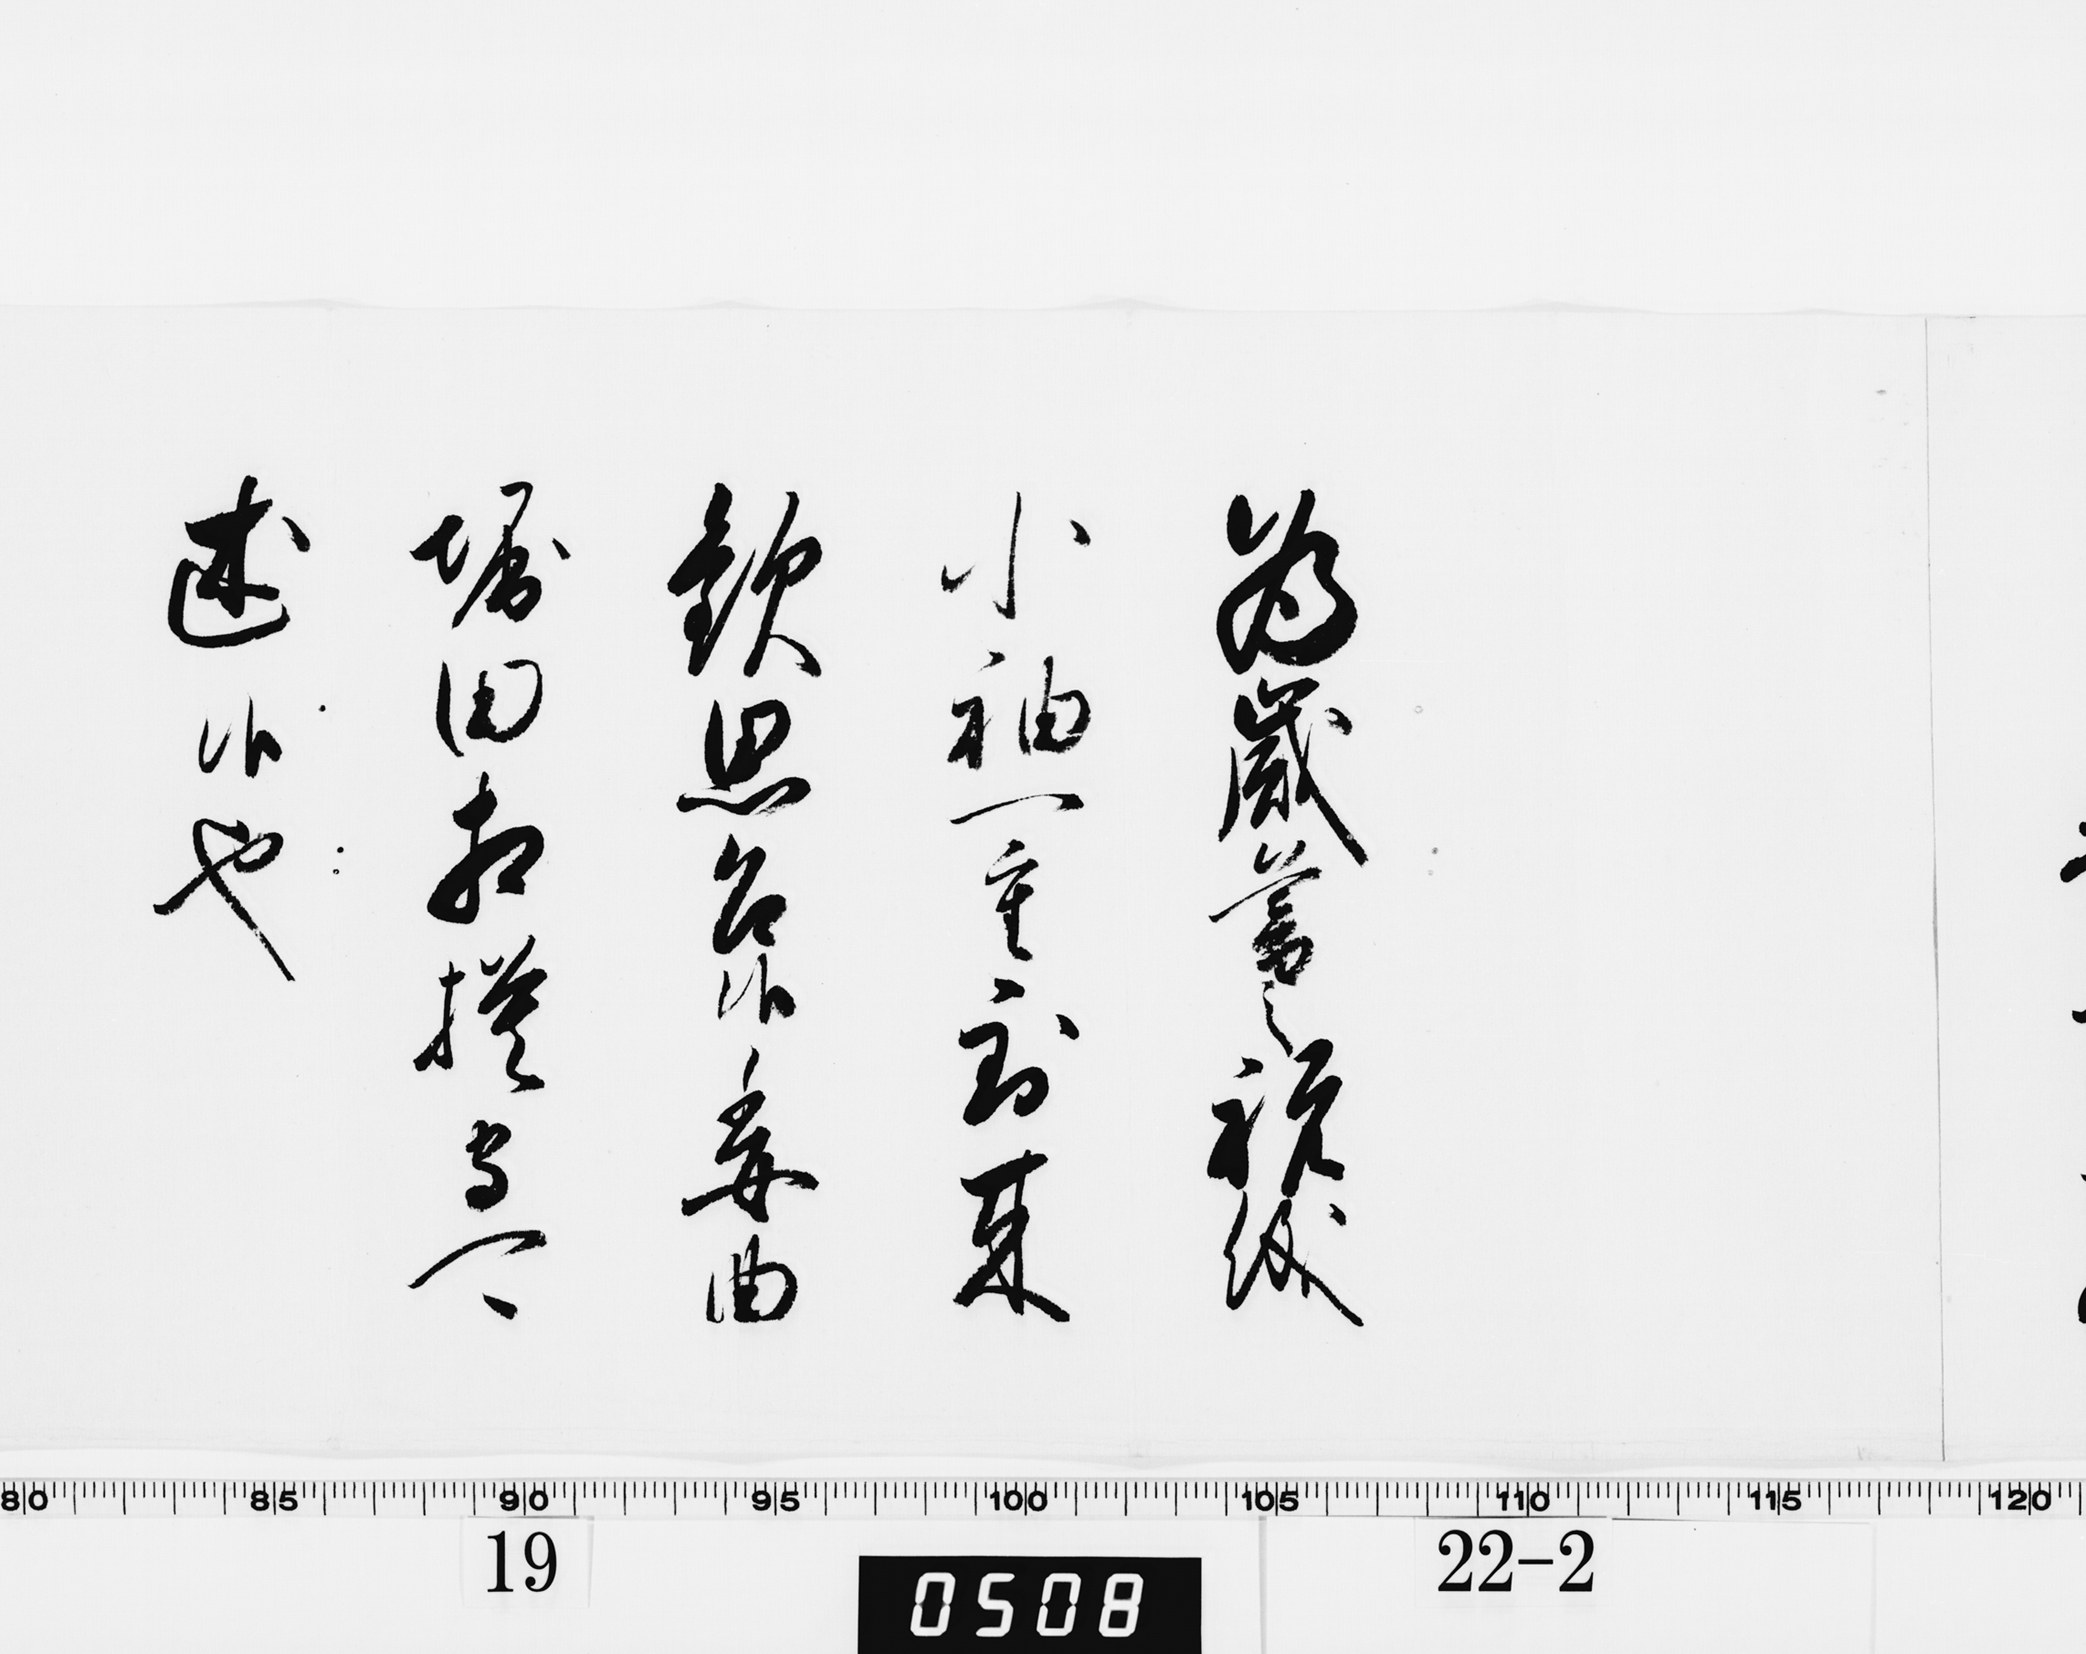 為歳暮之祝儀
小袖一重到来
歓思召候委曲
堀田相模守可
述候也
80 85 90 95 100 105 110 115 120
19 22-2
0508